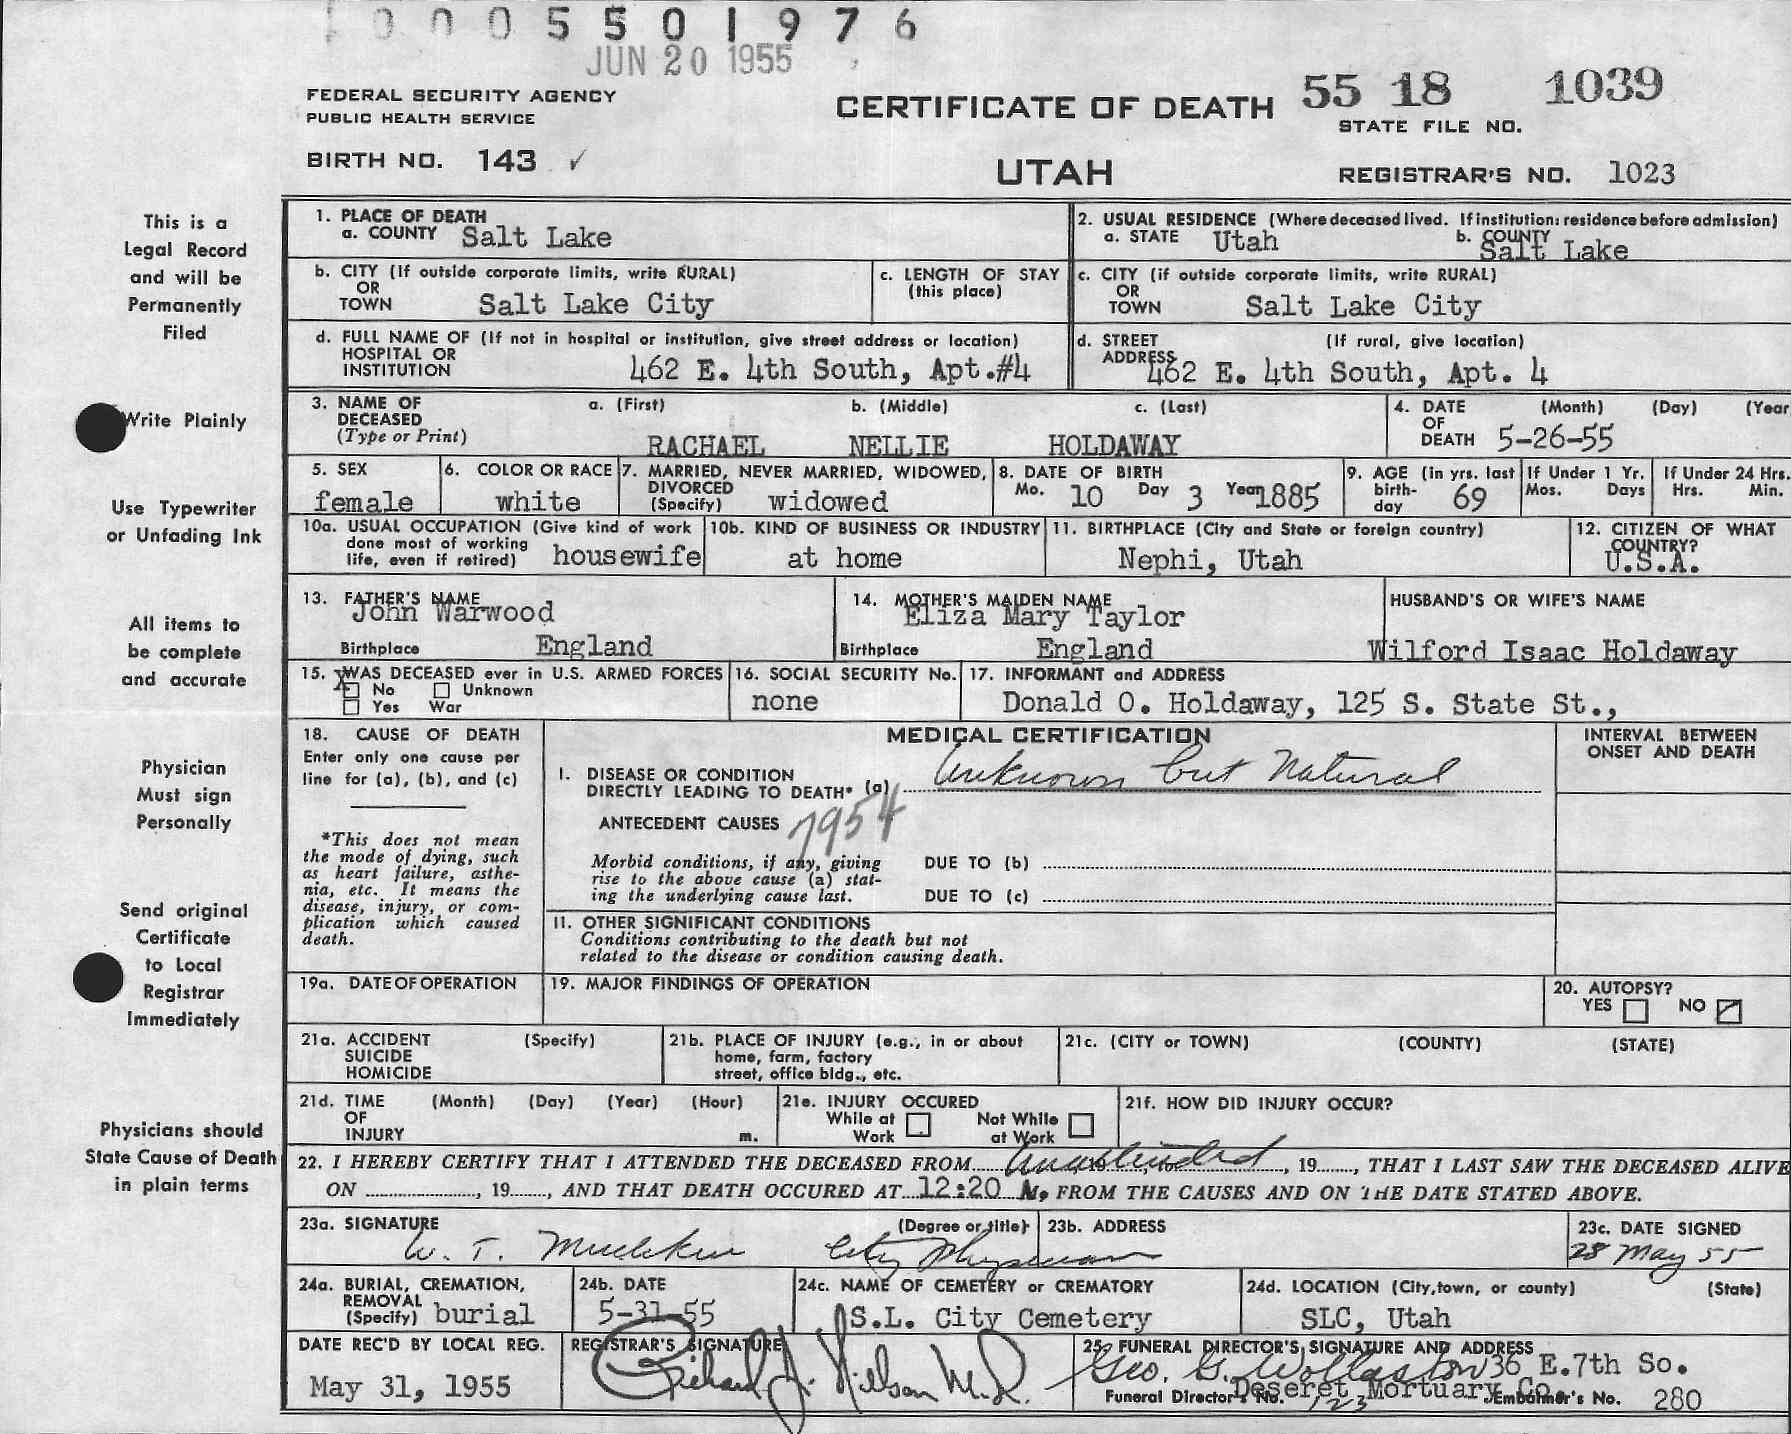 0005501976
JUN 20 1955
FEDERAL SECURITY AGENCY
PUBLIC HEALTH SERVICE
BIRTH NO. 143 ✓
CERTIFICATE OF DEATH
UTAH
55 18 1039
STATE FILE NO.
REGISTRAR'S NO. 1023
This is a
Legal Record
and will be
Permanently
Filed
Write Plainly
Use Typewriter
or Unfading Ink
All items to
be complete
and accurate
Physician
Must sign
Personally
Send original
Certificate
to Local
Registrar
Immediately
Physicians should
State Cause of Death
in plain terms
1. PLACE OF DEATH
a. COUNTY Salt Lake
2. USUAL RESIDENCE (Where deceased lived. If institution: residence before admission)
a. STATE Utah b. COUNTY Salt Lake
b. CITY (If outside corporate limits, write RURAL)
OR
TOWN Salt Lake City
c. LENGTH OF STAY
(this place)
c. CITY (if outside corporate limits, write RURAL)
OR
TOWN Salt Lake City
d. FULL NAME OF (If not in hospital or institution, give street address or location)
HOSPITAL OR
INSTITUTION 462 E. 4th South, Apt.#4
d. STREET (If rural, give location)
ADDRESS 462 E. 4th South, Apt. 4
3. NAME OF a. (First) b. (Middle) c. (Last)
DECEASED
(Type or Print) RACHAEL NELLIE HOLDAWAY
4. DATE (Month) (Day) (Year
OF
DEATH 5-26-55
5. SEX
female
6. COLOR OR RACE
white
7. MARRIED, NEVER MARRIED, WIDOWED,
DIVORCED
(Specify) widowed
8. DATE OF BIRTH
Mo. 10 Day 3 Year 1885
9. AGE (in yrs. last
birth-
day 69
If Under 1 Yr.
Mos. Days
If Under 24 Hrs.
Hrs. Min.
10a. USUAL OCCUPATION (Give kind of work
done most of working
life, even if retired) housewife
10b. KIND OF BUSINESS OR INDUSTRY
at home
11. BIRTHPLACE (City and State or foreign country)
Nephi, Utah
12. CITIZEN OF WHAT
COUNTRY?
U.S.A.
13. FATHER'S NAME
John Warwood
Birthplace England
14. MOTHER'S MAIDEN NAME
Eliza Mary Taylor
Birthplace England
HUSBAND'S OR WIFE'S NAME
Wilford Isaac Holdaway
15. WAS DECEASED ever in U.S. ARMED FORCES
X No Unknown
Yes War
16. SOCIAL SECURITY No.
none
17. INFORMANT and ADDRESS
Donald O. Holdaway, 125 S. State St.,
18. CAUSE OF DEATH
Enter only one cause per
line for (a), (b), and (c)
*This does not mean
the mode of dying, such
as heart failure, asthe-
nia, etc. It means the
disease, injury, or com-
plication which caused
death.
MEDICAL CERTIFICATION
I. DISEASE OR CONDITION
DIRECTLY LEADING TO DEATH* (a) Unknown but Natural
ANTECEDENT CAUSES 7954
Morbid conditions, if any, giving
rise to the above cause (a) stat-
ing the underlying cause last.
DUE TO (b)
DUE TO (c)
II. OTHER SIGNIFICANT CONDITIONS
Conditions contributing to the death but not
related to the disease or condition causing death.
INTERVAL BETWEEN
ONSET AND DEATH
19a. DATE OF OPERATION
19. MAJOR FINDINGS OF OPERATION
20. AUTOPSY?
YES NO
21a. ACCIDENT (Specify)
SUICIDE
HOMICIDE
21b. PLACE OF INJURY (e.g., in or about
home, farm, factory
street, office bldg., etc.
21c. (CITY or TOWN) (COUNTY) (STATE)
21d. TIME (Month) (Day) (Year) (Hour)
OF
INJURY m.
21e. INJURY OCCURED
While at Not While
Work at Work
21f. HOW DID INJURY OCCUR?
22. I HEREBY CERTIFY THAT I ATTENDED THE DECEASED FROM Unattended, 19......, THAT I LAST SAW THE DECEASED ALIVE
ON ......, 19......, AND THAT DEATH OCCURED AT 12:20 M., FROM THE CAUSES AND ON THE DATE STATED ABOVE.
23a. SIGNATURE (Degree or title)
W. T. City Physician
23b. ADDRESS
23c. DATE SIGNED
28 May 55
24a. BURIAL, CREMATION,
REMOVAL
(Specify) burial
24b. DATE
5-31-55
24c. NAME OF CEMETERY or CREMATORY
S.L. City Cemetery
24d. LOCATION (City, town, or county) (State)
SLC, Utah
DATE REC'D BY LOCAL REG.
May 31, 1955
REGISTRAR'S SIGNATURE
Richard J. Nelson M.D.
25. FUNERAL DIRECTOR'S SIGNATURE AND ADDRESS
Geo. G. Wollaston 36 E.7th So.
Deseret Mortuary Co.
Funeral Director's No. 123 Embalmer's No. 280